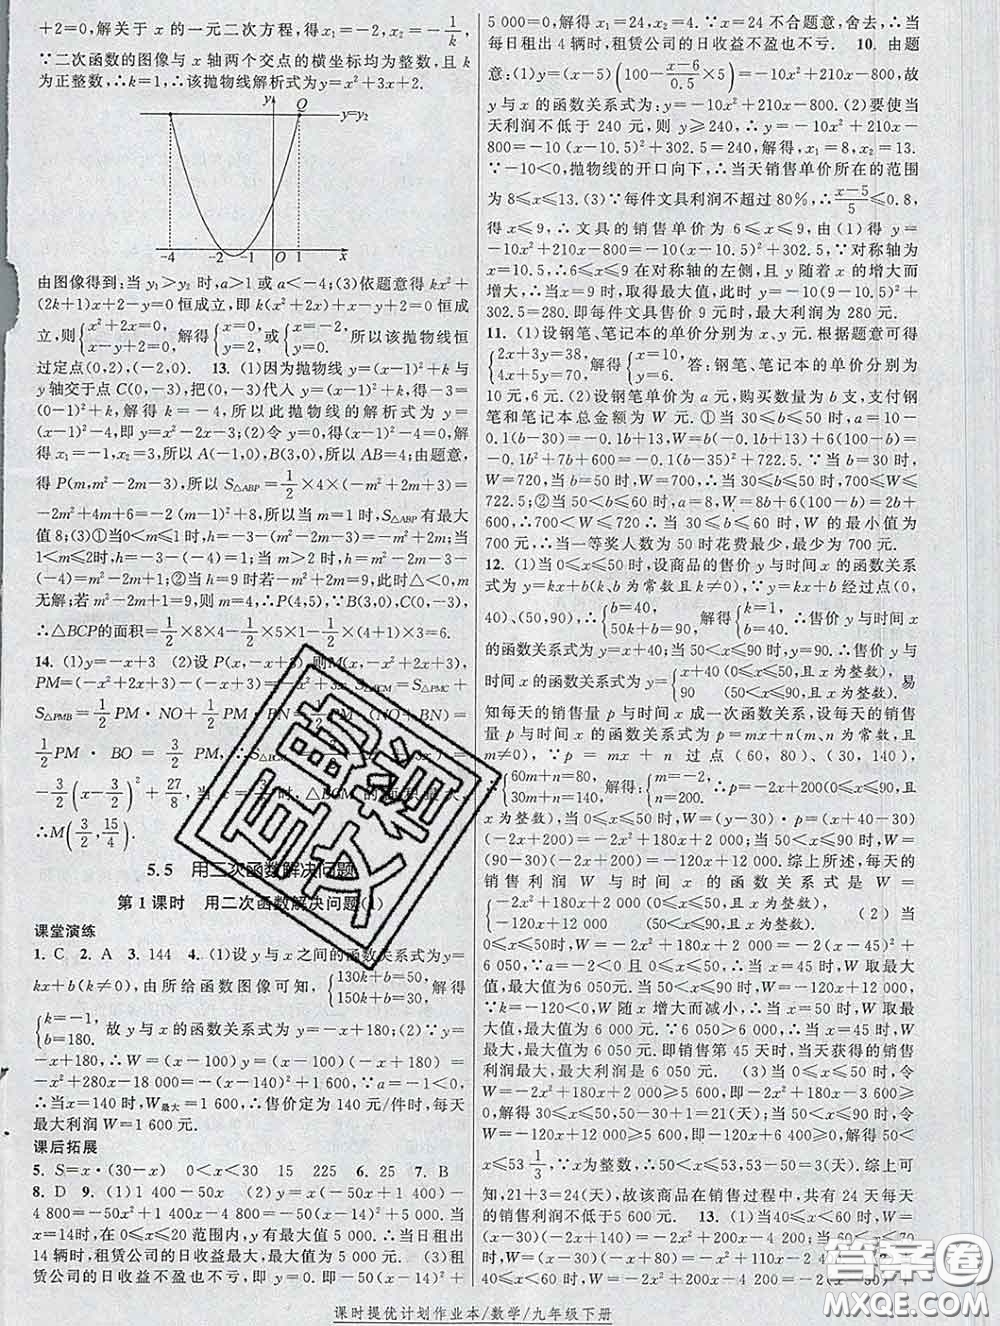 +2=0,解关于 x 的一元二次方程,得 x₁=-2,x₂=-1/k.
∵二次函数的图像与 x 轴两个交点的横坐标均为整数,且 k
为正整数,∴k=1,∴该抛物线解析式为 y=x²+3x+2.
y Q
y=y₂
-4 -2 -1 O 1 x
由图像得到:当 y₁>y₂ 时,a>1 或 a<-4;(3)依题意得 kx²+
(2k+1)x+2-y=0 恒成立,即 k(x²+2x)+x-y+2=0 恒成
立,则{x²+2x=0, x-y+2=0. 解得{x=0, y=2,或{x=-2, y=0. 所以该抛物线恒
过定点(0,2),(-2,0). 13. (1)因为抛物线 y=(x-1)²+k 与
y 轴交于点 C(0,-3),把(0,-3)代入 y=(x-1)²+k,得-3=
(0-1)²+k,解得 k=-4,所以此抛物线的解析式为 y=
(x-1)²-4,即 y=x²-2x-3;(2)令 y=0,得(x-1)²-4=0,解
得 x₁=-1,x₂=3,所以 A(-1,0),B(3,0),所以 AB=4;由题意,
得 P(m,m²-2m-3),所以 S△ABP=1/2×4×(-m²+2m+3)=
-2m²+4m+6=-2(m-1)²+8,所以当 m=1 时,S△ABP有最大
值 8;(3)①当0<m≤1时,h=-3-(m²-2m-3)=-m²+2m;当
1<m≤2时,h=-3-(-4)=1;当 m>2 时,h=m²-2m-3-
(-4)=m²-2m+1;②当 h=9 时若-m²+2m=9,此时△<0,m
无解;若 m²-2m+1=9,则 m=4,∴P(4,5),∵B(3,0),C(0,-3),
∴△BCP的面积=1/2×8×4-1/2×5×1-1/2×(4+1)×3=6.
14. (1)y=-x+3 (2)设 P(x,-x+3),则M(x,-x²+2x+3),
PM=(-x²+2x+3)-(-x+3)=-x²+3x,S△BCM=S△PMC+
S△PMB=1/2PM·NO+1/2PM·BN=1/2PM(NO+BN)=
1/2PM·BO=3/2PM,∴S△BCM
-3/2(x-3/2)²+27/8,当x=3/2时,△BCM的面积最大,
∴M(3/2,15/4).
5.5 用二次函数解决问题
第 1 课时 用二次函数解决问题(1)
课堂演练
1. C 2. A 3. 144 4. (1)设 y 与 x 之间的函数关系式为 y=
kx+b(k≠0),由所给函数图像可知,{130k+b=50, 150k+b=30, 解得
{k=-1, b=180. 故 y 与 x 的函数关系式为 y=-x+180;(2)∵y=
-x+180,∴W=(x-100)y=(x-100)(-x+180)=
-x²+280x-18 000=-(x-140)²+1 600,∵-1<0,
∴当x=140 时,W最大=1 600,∴售价定为 140 元/件时,每天
最大利润 W=1 600 元.
课后拓展
5. S=x·(30-x) 0<x<30 15 225 6. 25 7. B
8. D 9. (1)1 400-50x (2)y=x(-50x+1 400)-
4 800=-50x²+1 400x-4 800=-50(x-14)²+5 000. 当
x=14时,在 0≤x≤20 范围内,y 有最大值 5 000,∴当日租出
14 辆时,租赁公司的日收益最大,最大值为 5 000 元. (3)租
赁公司的日收益不盈也不亏,即 y=0. 即-50(x-14)²+
5 000=0,解得 x₁=24,x₂=4,∵x=24 不合题意,舍去,∴当
每日租出 4 辆时,租赁公司的日收益不盈也不亏. 10. 由题
意:(1)y=(x-5)(100-(x-6)/0.5×5)=-10x²+210x-800,故
y 与 x 的函数关系式为:y=-10x²+210x-800. (2)要使当
天利润不低于 240 元,则 y≥240,∴y=-10x²+210x-
800=-10(x-10.5)²+302.5=240,解得,x₁=8,x₂=13.
∵-10<0,抛物线的开口向下,∴当天销售单价所在的范围
为 8≤x≤13. (3)∵每件文具利润不超过 80%,∴(x-5)/5≤0.8,
得 x≤9,∴文具的销售单价为 6≤x≤9,由(1)得 y=
-10x²+210x-800=-10(x-10.5)²+302.5,∵对称轴
为 x=10.5,∴6≤x≤9 在对称轴的左侧,且 y 随着 x 的增大而
增大,∴当x=9 时,取得最大值,此时 y=-10(9-10.5)²+
302.5=280. 即每件文具售价 9 元时,最大利润为 280 元.
11. (1)设钢笔、笔记本的单价分别为 x、y元. 根据题意可得
{2x+3y=38, 4x+5y=70, 解得{x=10, y=6. 答:钢笔、笔记本的单价分别为
10 元,6 元. (2)设钢笔单价为 a 元,购买数量为 b 支,支付钢
笔和笔记本总金额为 W 元. ①当 30≤b≤50 时,a=10-
0.1(b-30)=-0.1b+13,W=b(-0.1b+13)+6(100-b)=
-0.1b²+7b+600=-0.1(b-35)²+722.5. ∵当 b=30 时,
W=720,当 b=50 时,W=700,∴当 30≤b≤50 时,700≤W≤
722.5;②当 50<b≤60 时,a=8,W=8b+6(100-b)=2b+
600,∴700<W≤720∴当 30≤b≤60 时,W 的最小值为
700 元,∴当一等奖人数为 50 时花费最少,最少为 700 元.
12. (1)当 0≤x≤50时,设商品的售价 y 与时间 x 的函数关系
式为 y=kx+b(k、b 为常数且 k≠0),∵y=kx+b 经过点(0,
40)、(50,90),∴{b=40, 50k+b=90, 解得{k=1, b=40, ∴售价 y 与时间 x
的函数关系式为 y=x+40;当 50<x≤90 时,y=90. ∴售价 y 与
时间 x 的函数关系式为 y={x+40 (0≤x≤50,且 x 为整数), 90 (50<x≤90,且 x 为整数). 易
知每天的销售量 p 与时间 x 成一次函数关系,设每天的销售
量 p 与时间 x 的函数关系式为 p=mx+n(m、n 为常数,且
m≠0),∵p=mx+n 过点(60,80)、(30,140),
∴{60m+n=80, 30m+n=140, 解得{m=-2, n=200. ∴p=-2x+200(0≤x≤90,且
x 为整数). 当0≤x≤50 时,W=(y-30)·p=(x+40-30)
(-2x+200)=-2x²+180x+2 000;当50<x≤90 时,W=(90-30)
(-2x+200)=-120x+12 000. 综上所述,每天的
销售利润 W 与时间 x 的函数关系式是 W=
(2)当
0≤x≤50 时,W=-2x²+180x+2 000=-2(x-45)²+
6 050,∵a=-2<0 且 0≤x≤50,∴当x=45 时,W 取最大值,
最大值为 6 050 元. 当50<x≤90 时,W=-120x+12 000,
∵k=-120<0,W 随 x 增大而减小,∴当 x=50 时,W 取最
大值,最大值为 6 000 元. ∵6 050>6 000,∴当 x=45 时,W
最大,最大值为 6 050 元. 即销售第 45 天时,当天获得的销售
利润最大,最大利润是 6 050 元. (3)当 0≤x≤50 时,令
W=-2x²+180x+2 000≥5 600,即-2x²+180x-3 600≥
0,解得 30≤x≤50,50-30+1=21(天);当 50<x≤90时,令
W=-120x+12 000≥5 600,即-120x+6 400≥0,解得 50<
x≤53 1/3,∵x为整数,∴50<x≤53,53-50=3(天). 综上可
知,21+3=24(天),故该商品在销售过程中,共有 24 天每天
的销售利润不低于5 600 元. 13. (1)当40≤x<60 时,W=
(x-30)(-2x+140)=-2x²+200x-4 200,当60≤x≤70
时,W=(x-30)(-x+80)=-x²+110x-2 400. (2)当
40≤x<60 时,W=-2x²+200x-4 200=-2(x-50)²+
课时提优计划作业本/数学/九年级下册
互助文档
答案圈
MXQE.COM